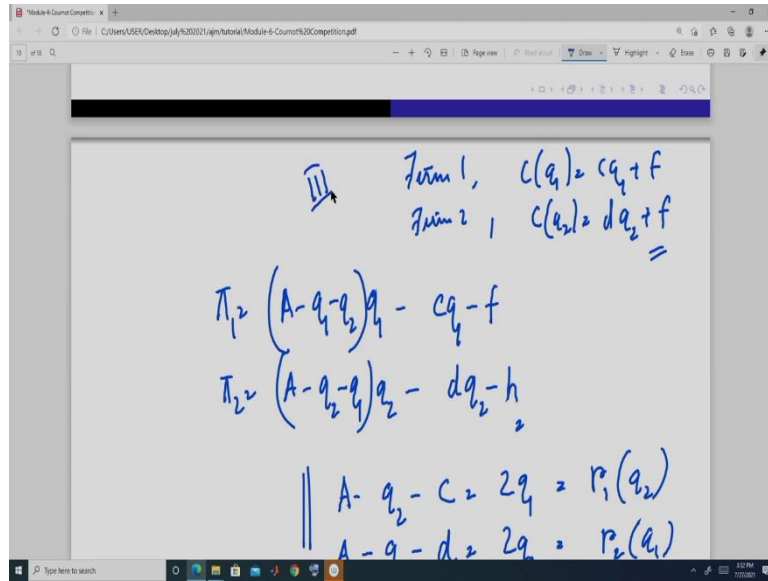 *Module-6-Cournot Competition
File | C:/Users/USER/Desktop/july%202021/ajm/tutorial/Module-6-Cournot%20Competition.pdf
10 of 16
Page view
Read aloud
Draw
Highlight
Erase
III
Firm 1, C(q₁) = cq₁ + f
Firm 2, C(q₂) = dq₂ + f
π₁ = (A - q₁ - q₂)q₁ - cq₁ - f
π₂ = (A - q₂ - q₁)q₂ - dq₂ - h
A - q₂ - c = 2q₁ = r₁(q₂)
A - q - d = 2q = r₂(q₁)
Type here to search
3:32 PM
7/27/2021